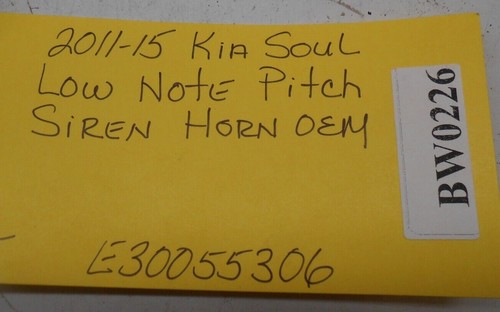 2011-15 Kia SOUL
LOW NOTE Pitch
SIREN HORN OEM
E30055306
BW0226